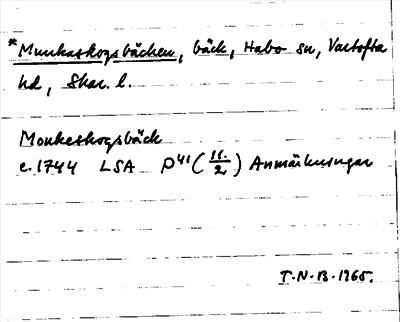 *Munkaskogsbäcken, bäck, Habo sn, Vartofta
hd, Skar. l.
Monkeskogsbäck
c. 1744 LSA P41 (11/2) Anmärkningar
T.N.B. 1965.